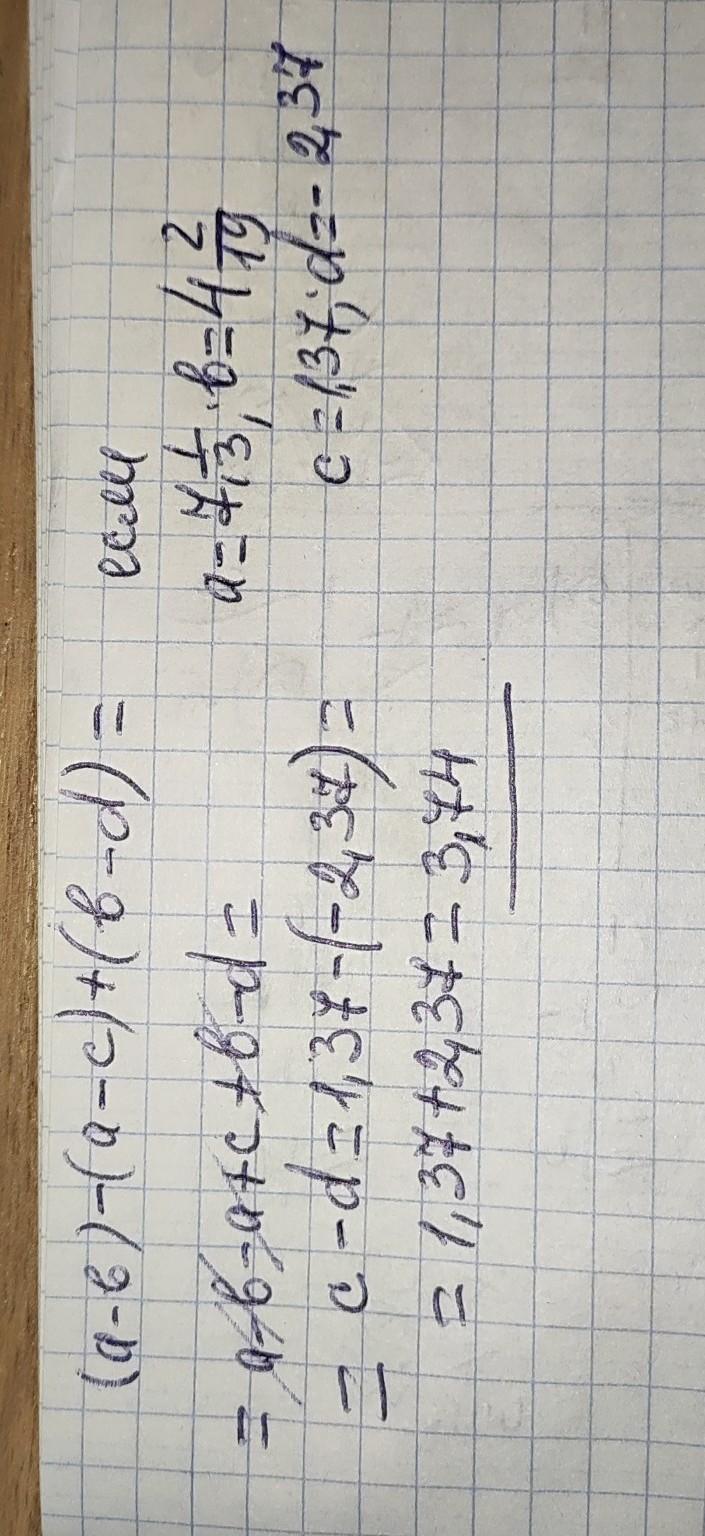 (a-в)-(a-c)+(в-d)=
если
a=7 1/3, в=4 2/19
=a-в-a+c+в-d=
c=1,37, d=-2,37
= c-d=1,37-(-2,37)=
=1,37+2,37=3,74